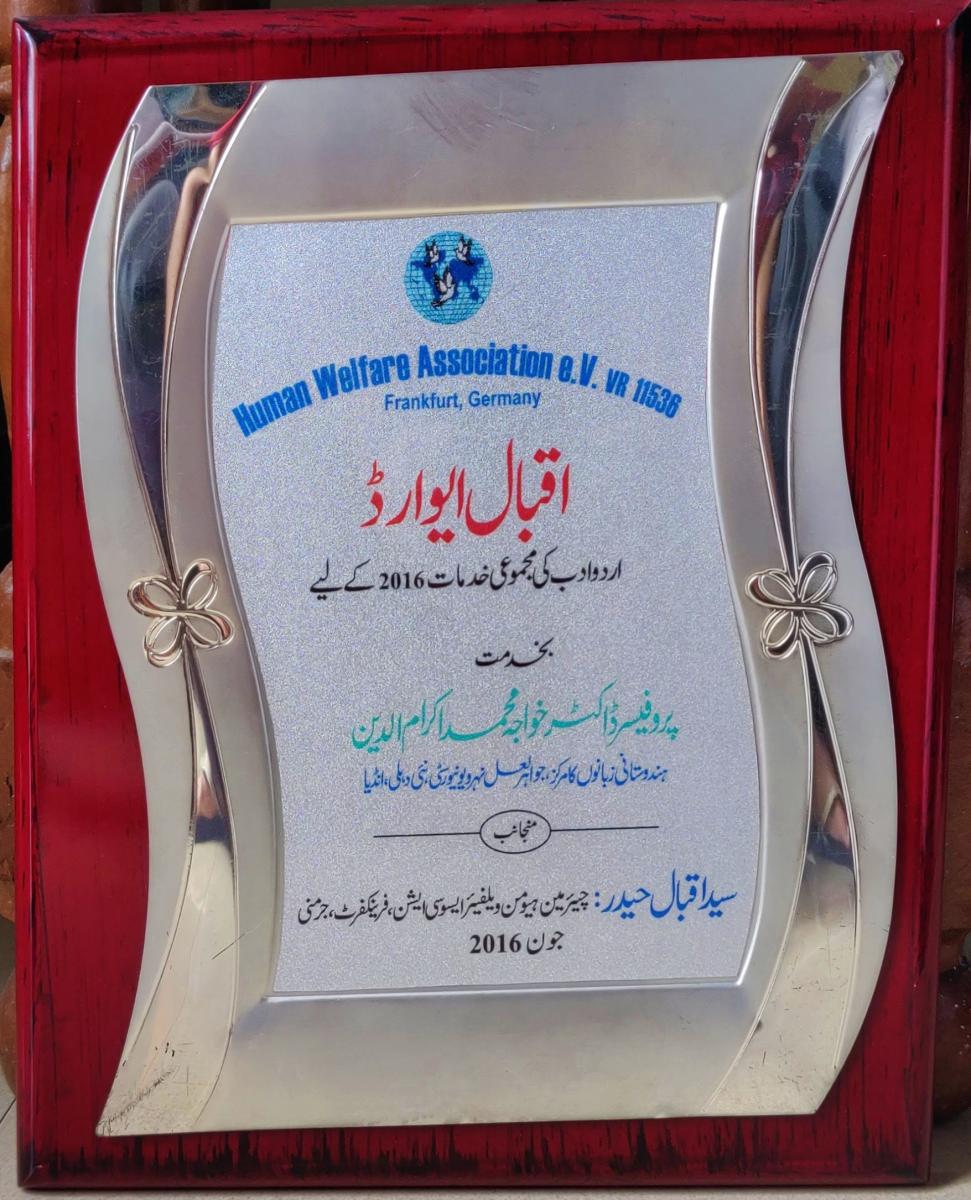 Human Welfare Association e.V. VR 11536
Frankfurt, Germany
اقبال ایوارڈ
اردو ادب کی مجموعی خدمات 2016 کے لیے
بخدمت
پروفیسر ڈاکٹر خواجہ محمد اکرام الدین
ہندوستانی زبانوں کا مرکز، جواہر لعل نہرو یونیورسٹی، نئی دہلی، انڈیا
منجانب
سید اقبال حیدر: چیئرمین ہیومن ویلفیئر ایسوسی ایشن، فرینکفرٹ، جرمنی
جون 2016